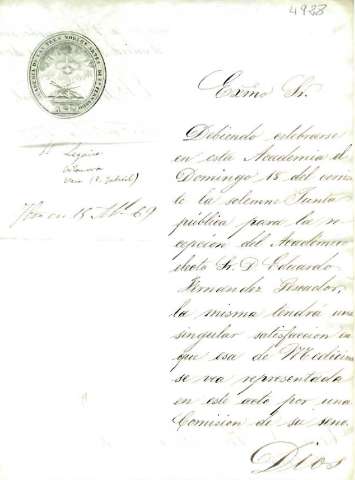 4923
ACADEMIA DE LAS TRES NOBLES ARTES DE SN FERNANDO
Exmo Sr.
Debiendo celebrarse
en esta Academia el
Domingo 18 del corrien
te la solemne Junta
pública para la re
cepcion del Académico
electo Sr. D. Eduardo
Fernandez Pescador,
la misma tendrá una
singular satisfaccion en
que esa de Medicina
se vea representada
en este acto por una
Comision de su seno.
Dios